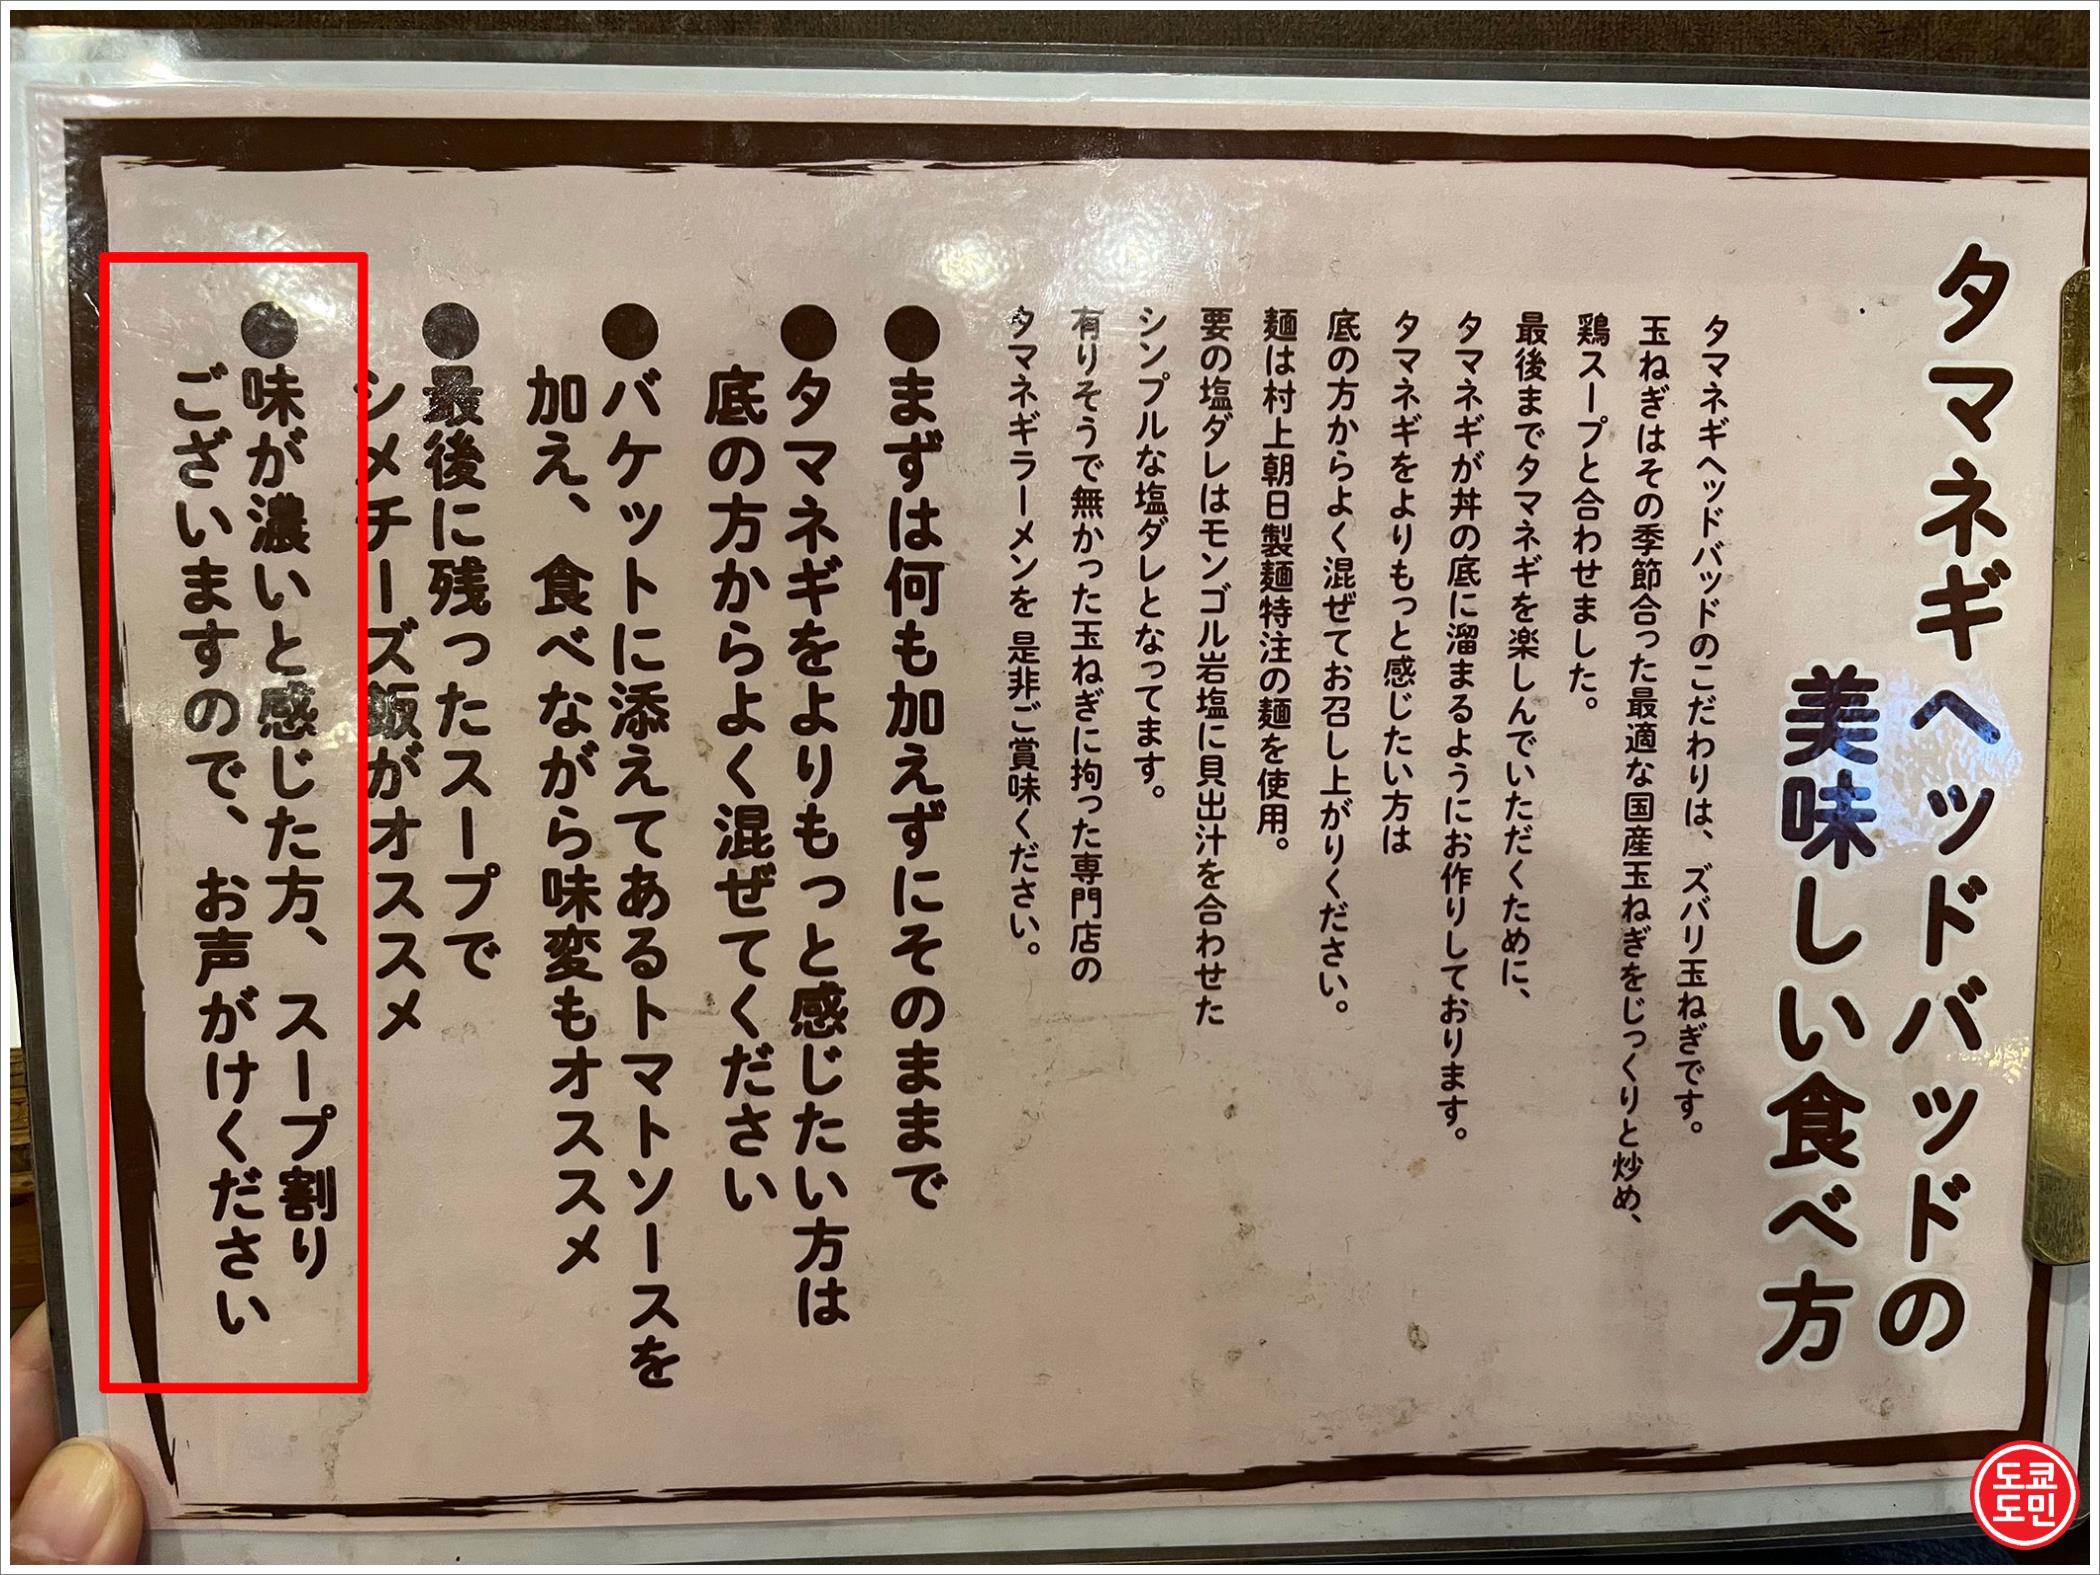 タマネギヘッドバッドの
美味しい食べ方
タマネギヘッドバッドのこだわりは、ズバリ玉ねぎです。
玉ねぎはその季節合った最適な国産玉ねぎをじっくりと炒め、
鶏スープと合わせました。
最後までタマネギを楽しんでいただくために、
タマネギが丼の底に溜まるようにお作りしております。
タマネギをよりもっと感じたい方は
底の方からよく混ぜてお召し上がりください。
麺は村上朝日製麺特注の麺を使用。
要の塩ダレはモンゴル岩塩に貝出汁を合わせた
シンプルな塩ダレとなってます。
有りそうで無かった玉ねぎに拘った専門店の
タマネギラーメンを 是非ご賞味ください。
●まずは何も加えずにそのままで
●タマネギをよりもっと感じたい方は
底の方からよく混ぜてください
●バケットに添えてあるトマトソースを
加え、食べながら味変もオススメ
●最後に残ったスープで
シメチーズ飯がオススメ
●味が濃いと感じた方、スープ割り
ございますので、お声がけください
도쿄
도민